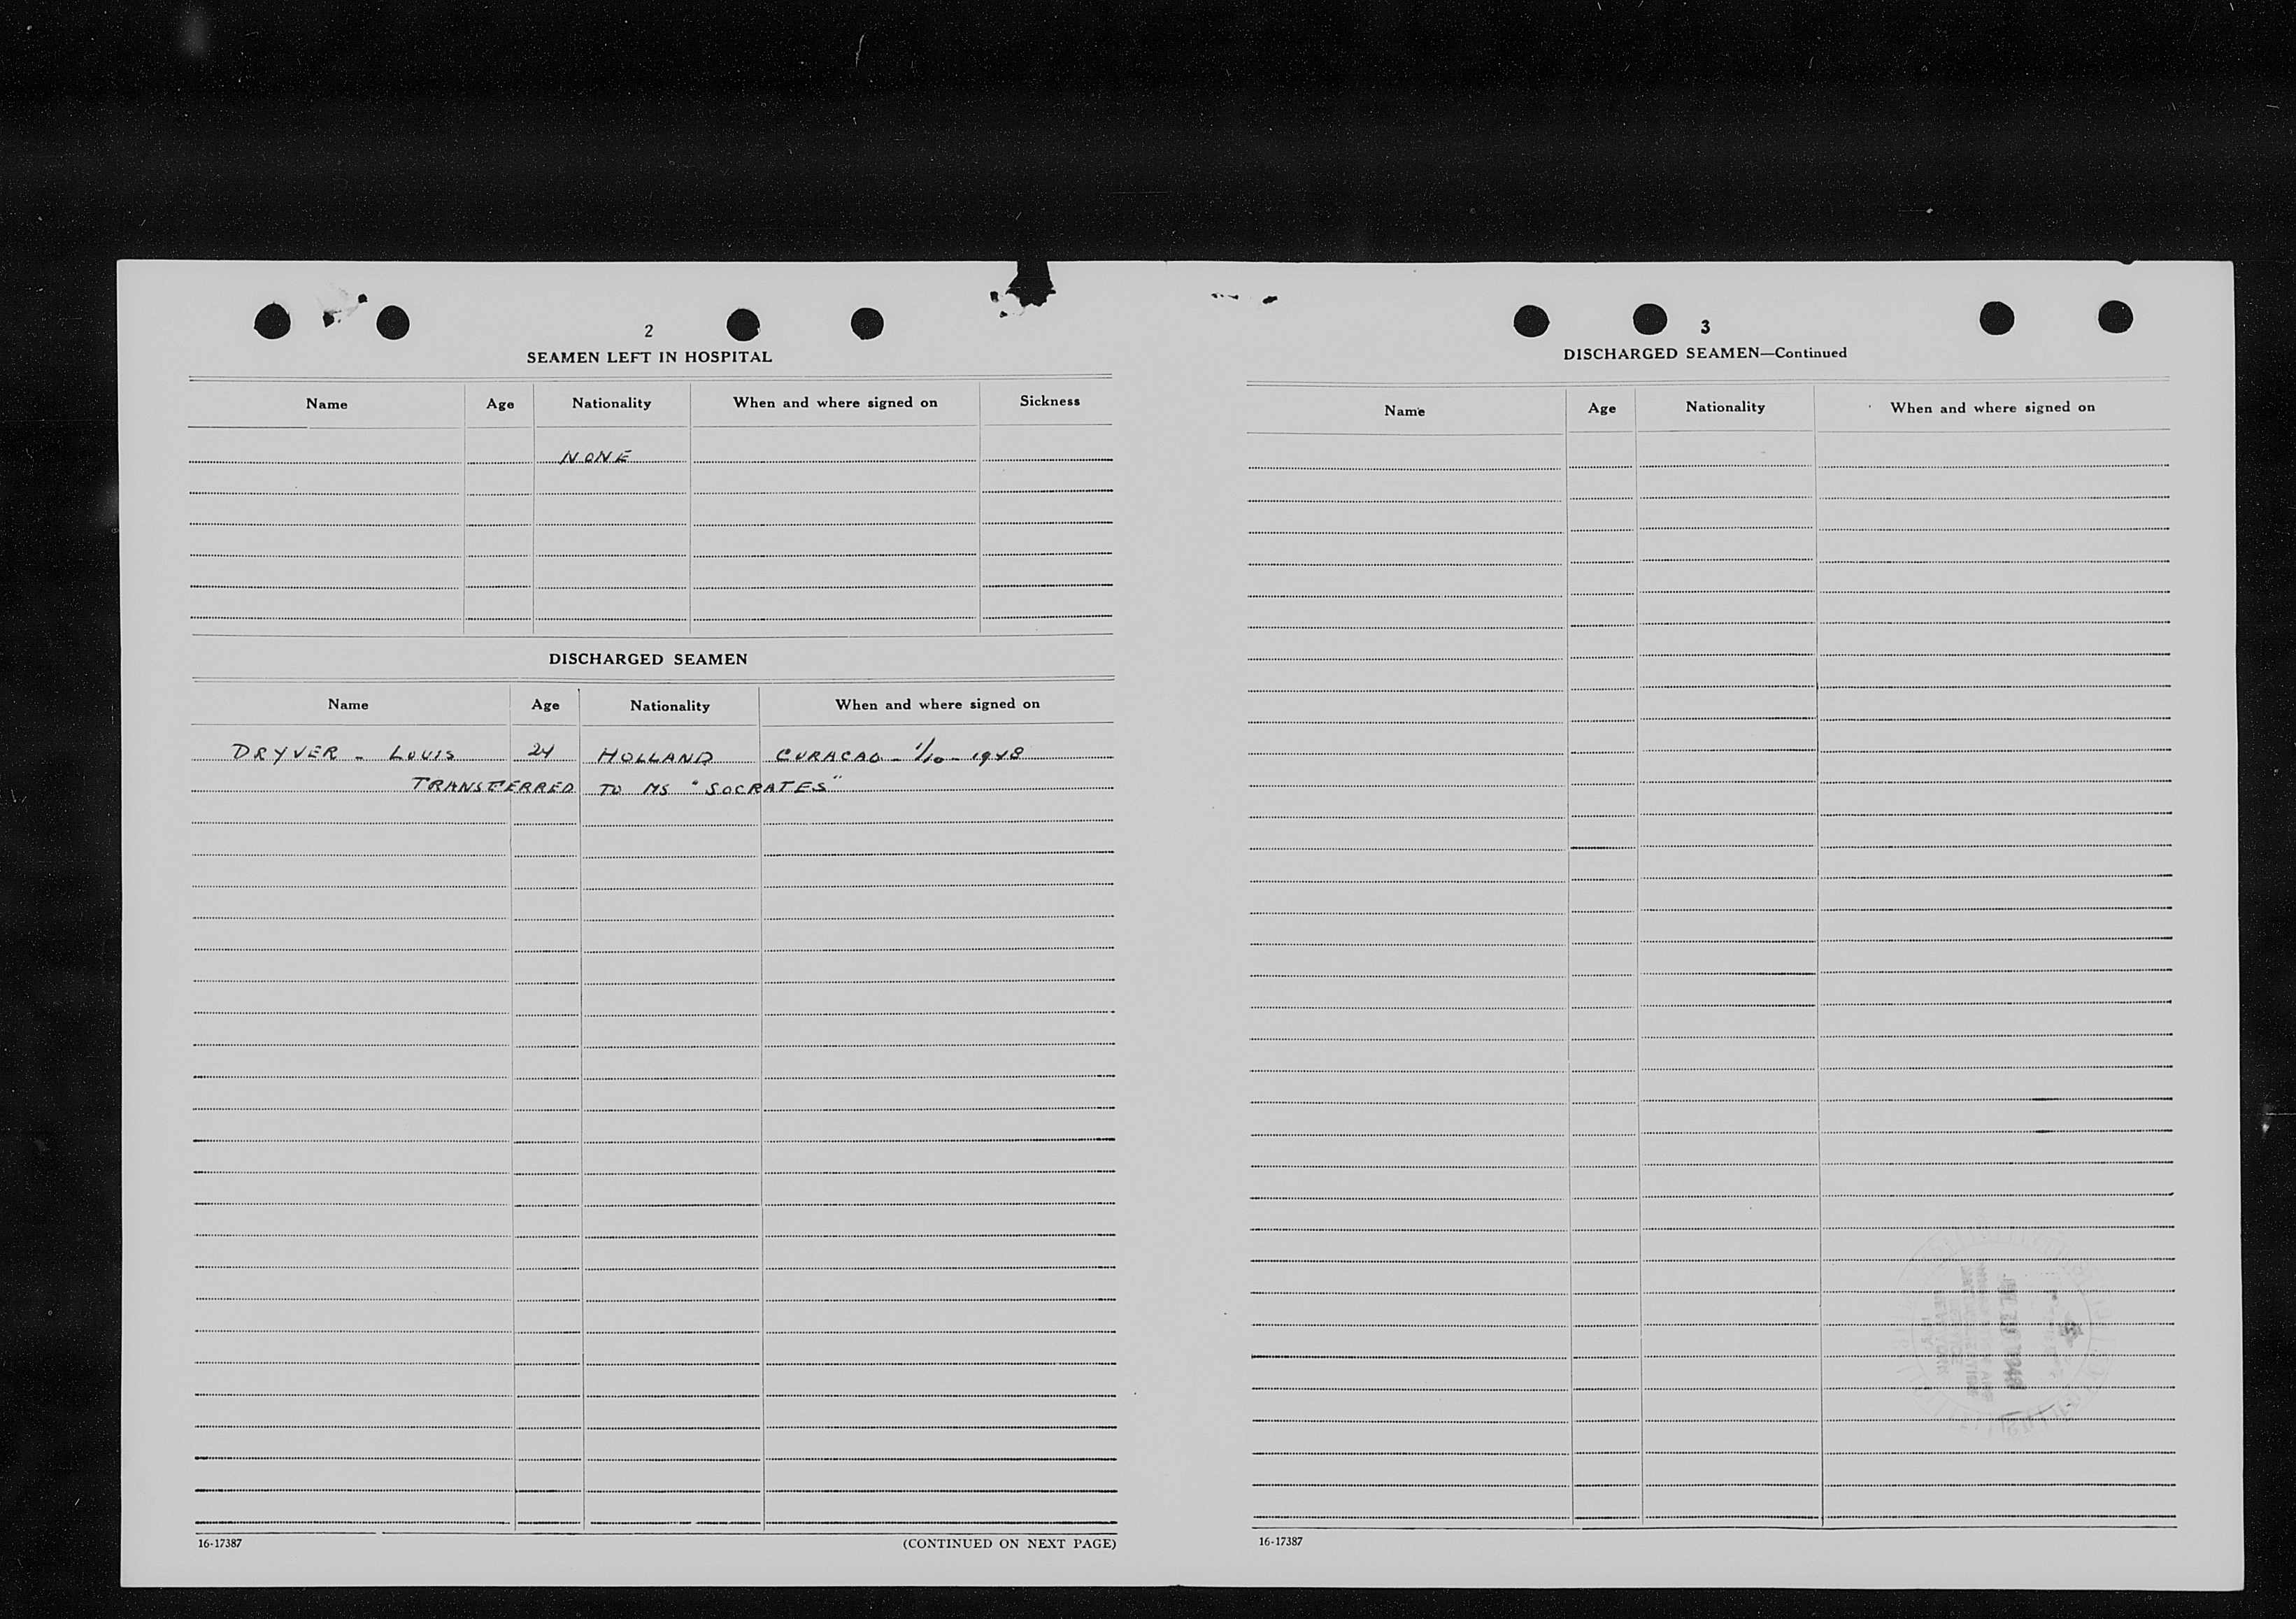 2
SEAMEN LEFT IN HOSPITAL
Name Age Nationality When and where signed on Sickness
NONE
DISCHARGED SEAMEN
Name Age Nationality When and where signed on
DRYVER - LOUIS 24 HOLLAND CURACAO - 1/10 - 1948
TRANSFERRED TO MS "SOCRATES"
16-17387 (CONTINUED ON NEXT PAGE)
3
DISCHARGED SEAMEN—Continued
Name Age Nationality When and where signed on
16-17387